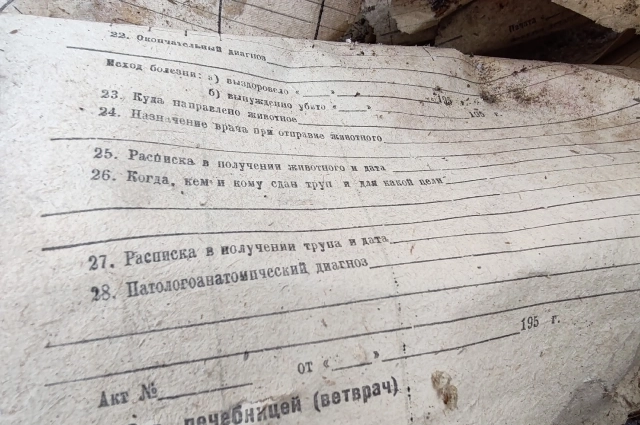 22. Окончательный диагноз
Исход болезни: а) выздоровело « » 195 г.
б) вынужденно убито « » 195 г.
23. Куда направлено животное
24. Назначение врача при отправке животного
25. Расписка в получении животного и дата
26. Когда, кем и кому сдан труп и для какой цели
27. Расписка в получении трупа и дата
28. Патологоанатомический диагноз
Акт № от « » 195 г.
лечебницей (ветврач)